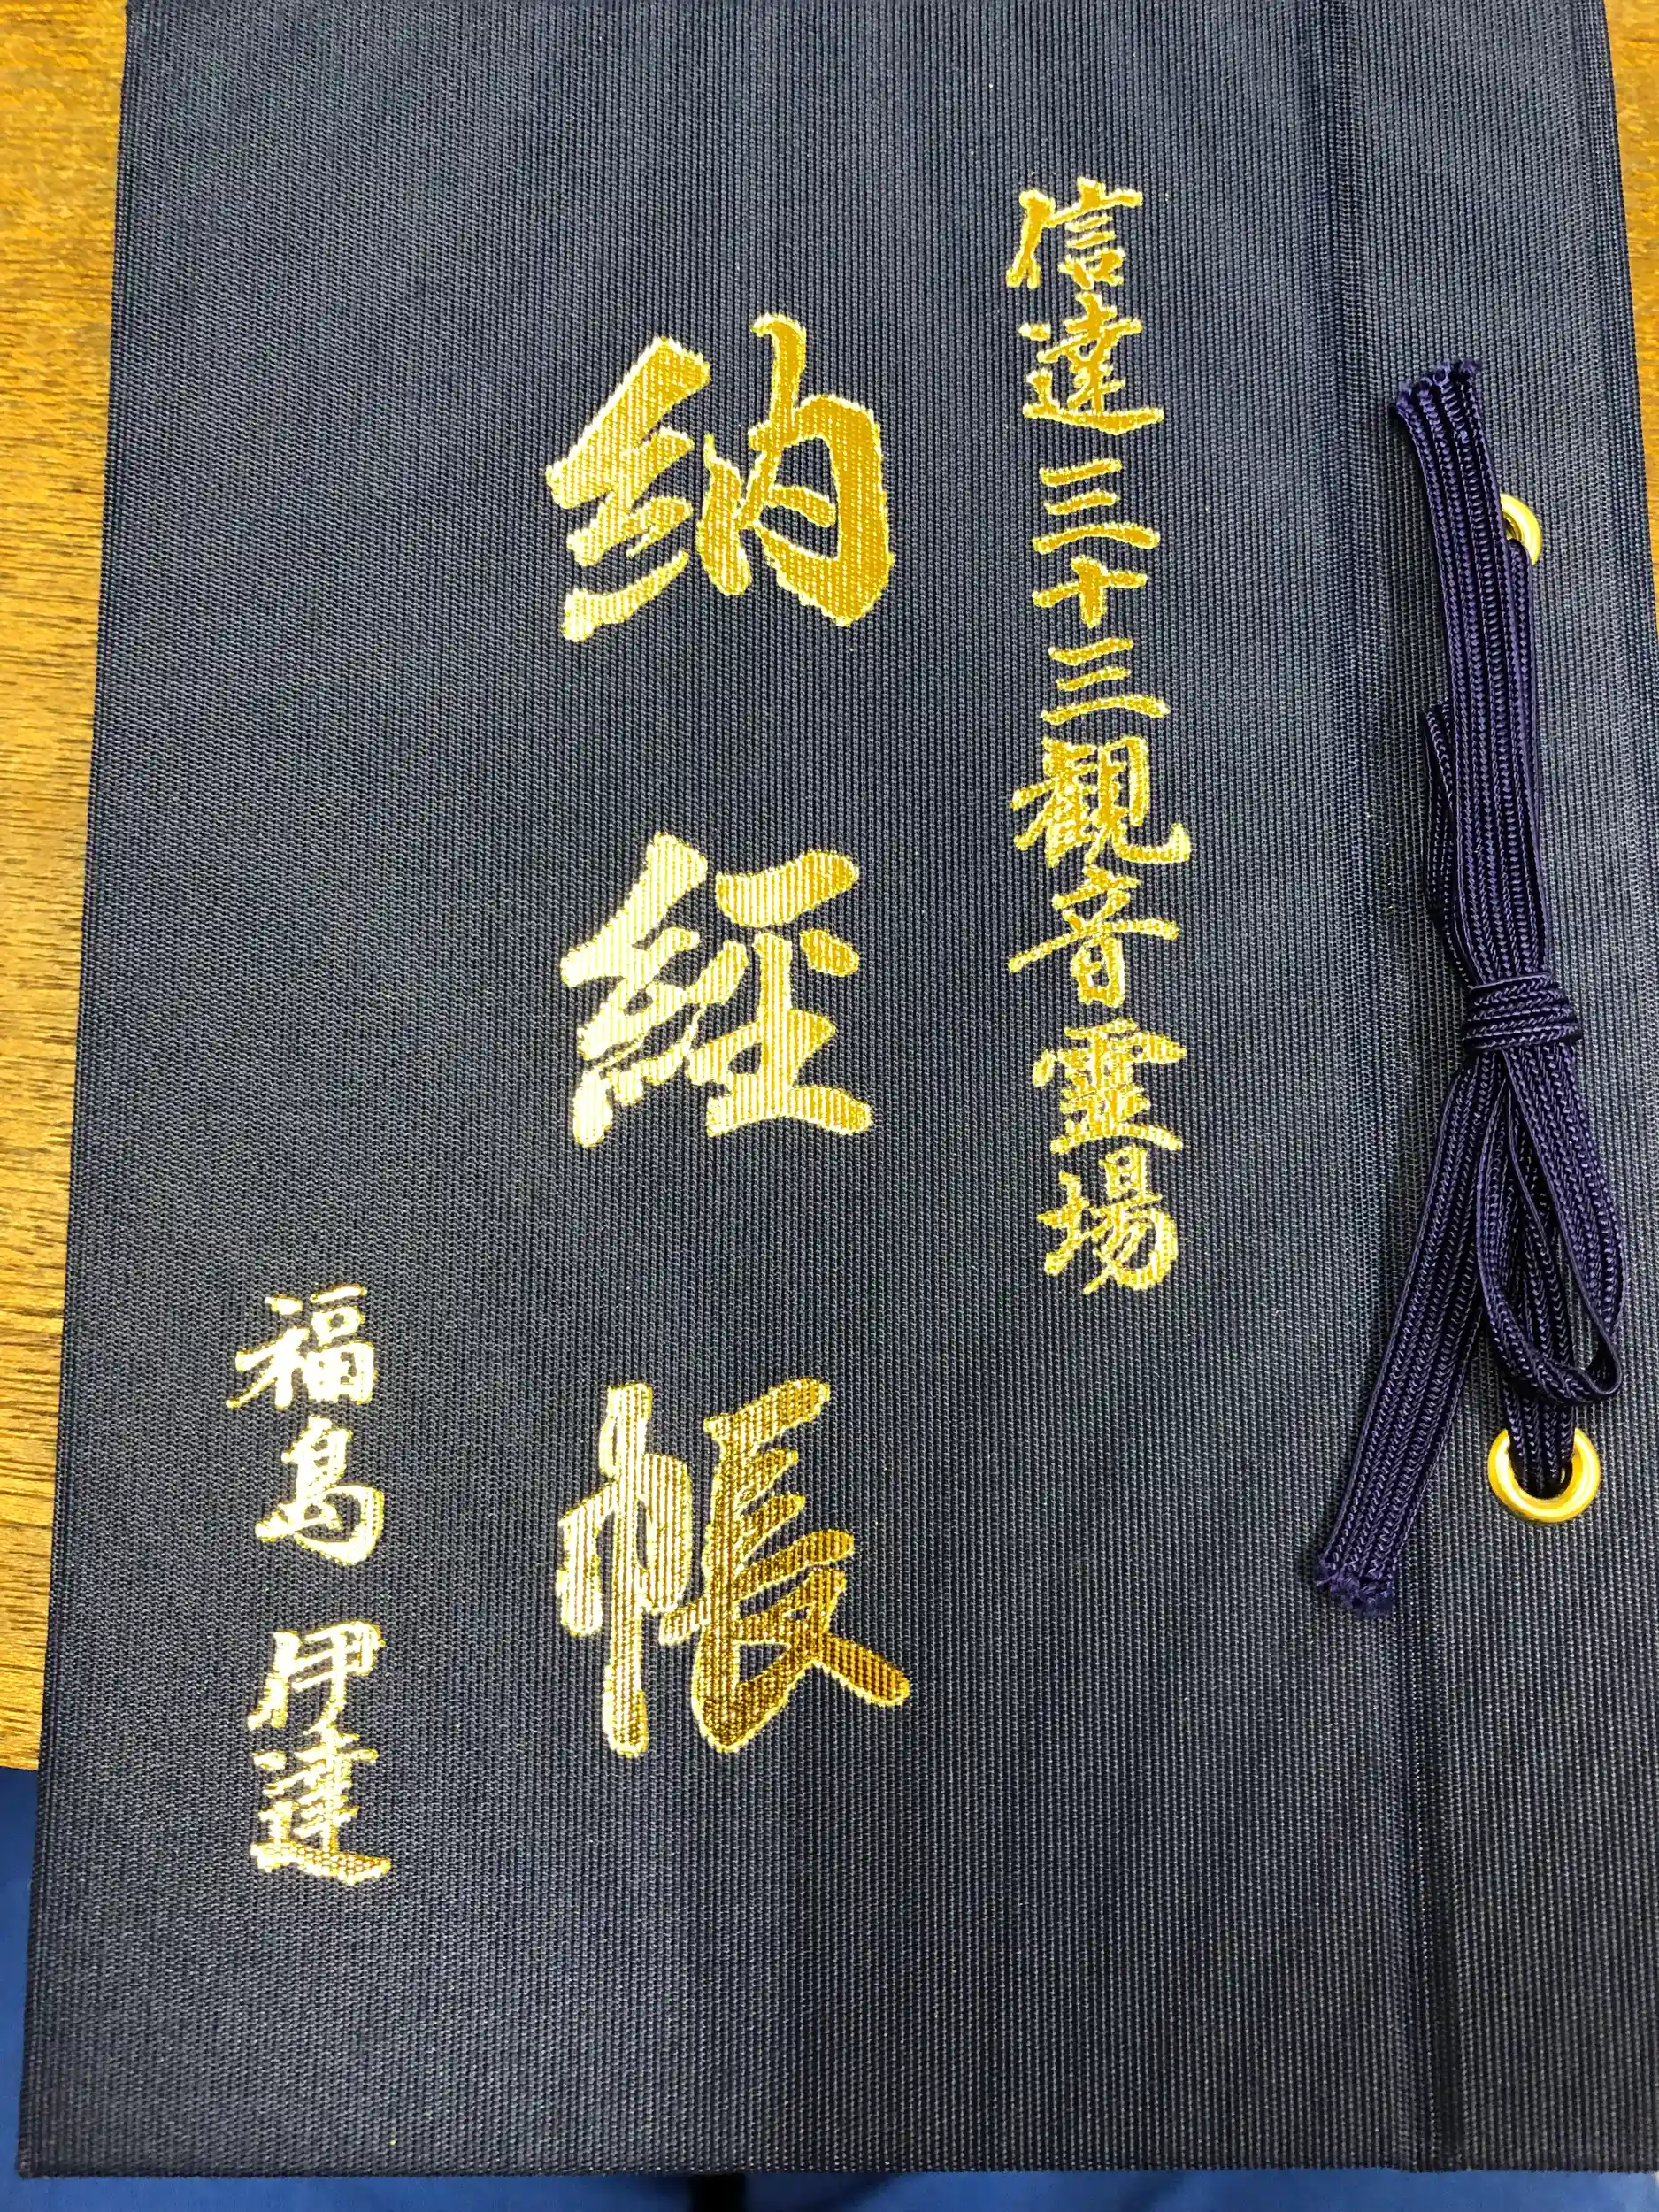 信達三十三観音霊場
納経帳
福島 伊達